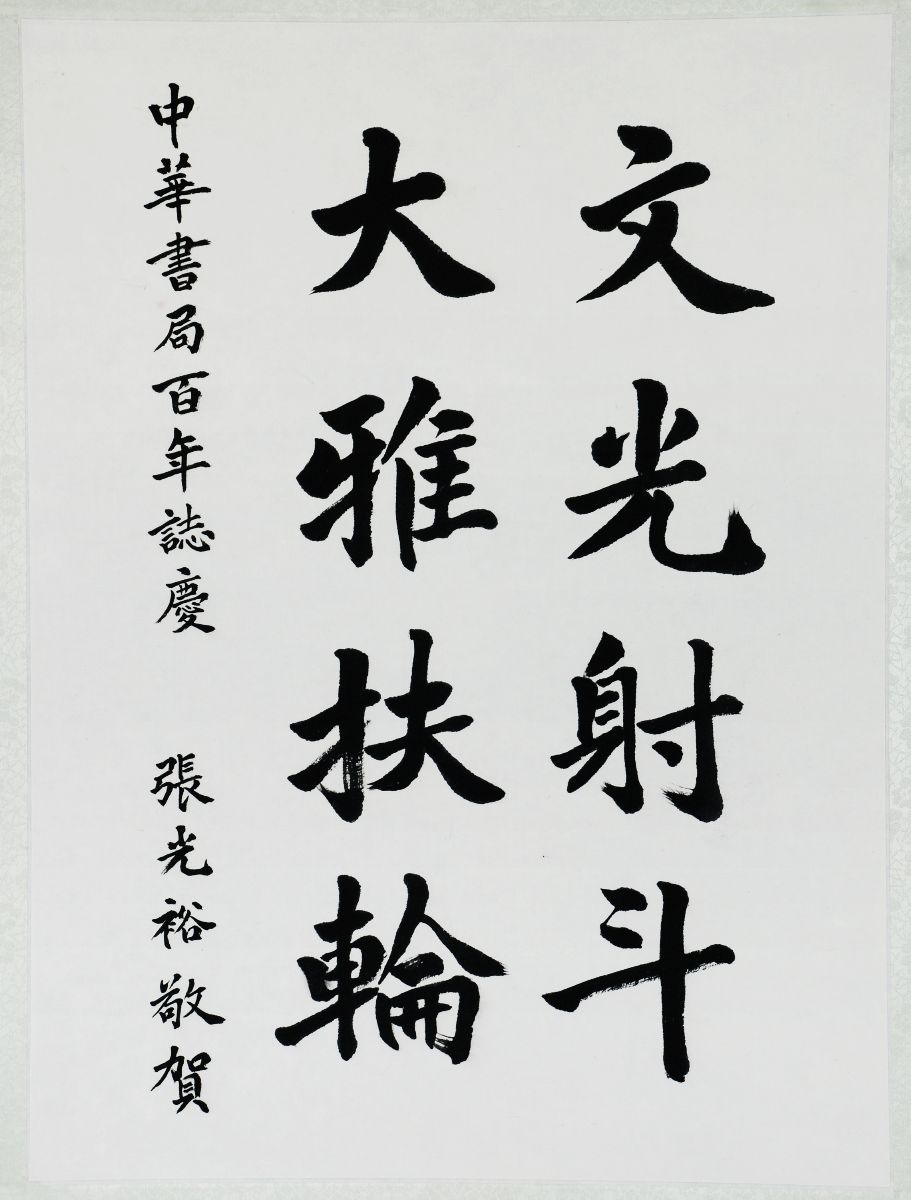 文光射斗
大雅扶輪
中華書局百年誌慶 張光裕敬賀